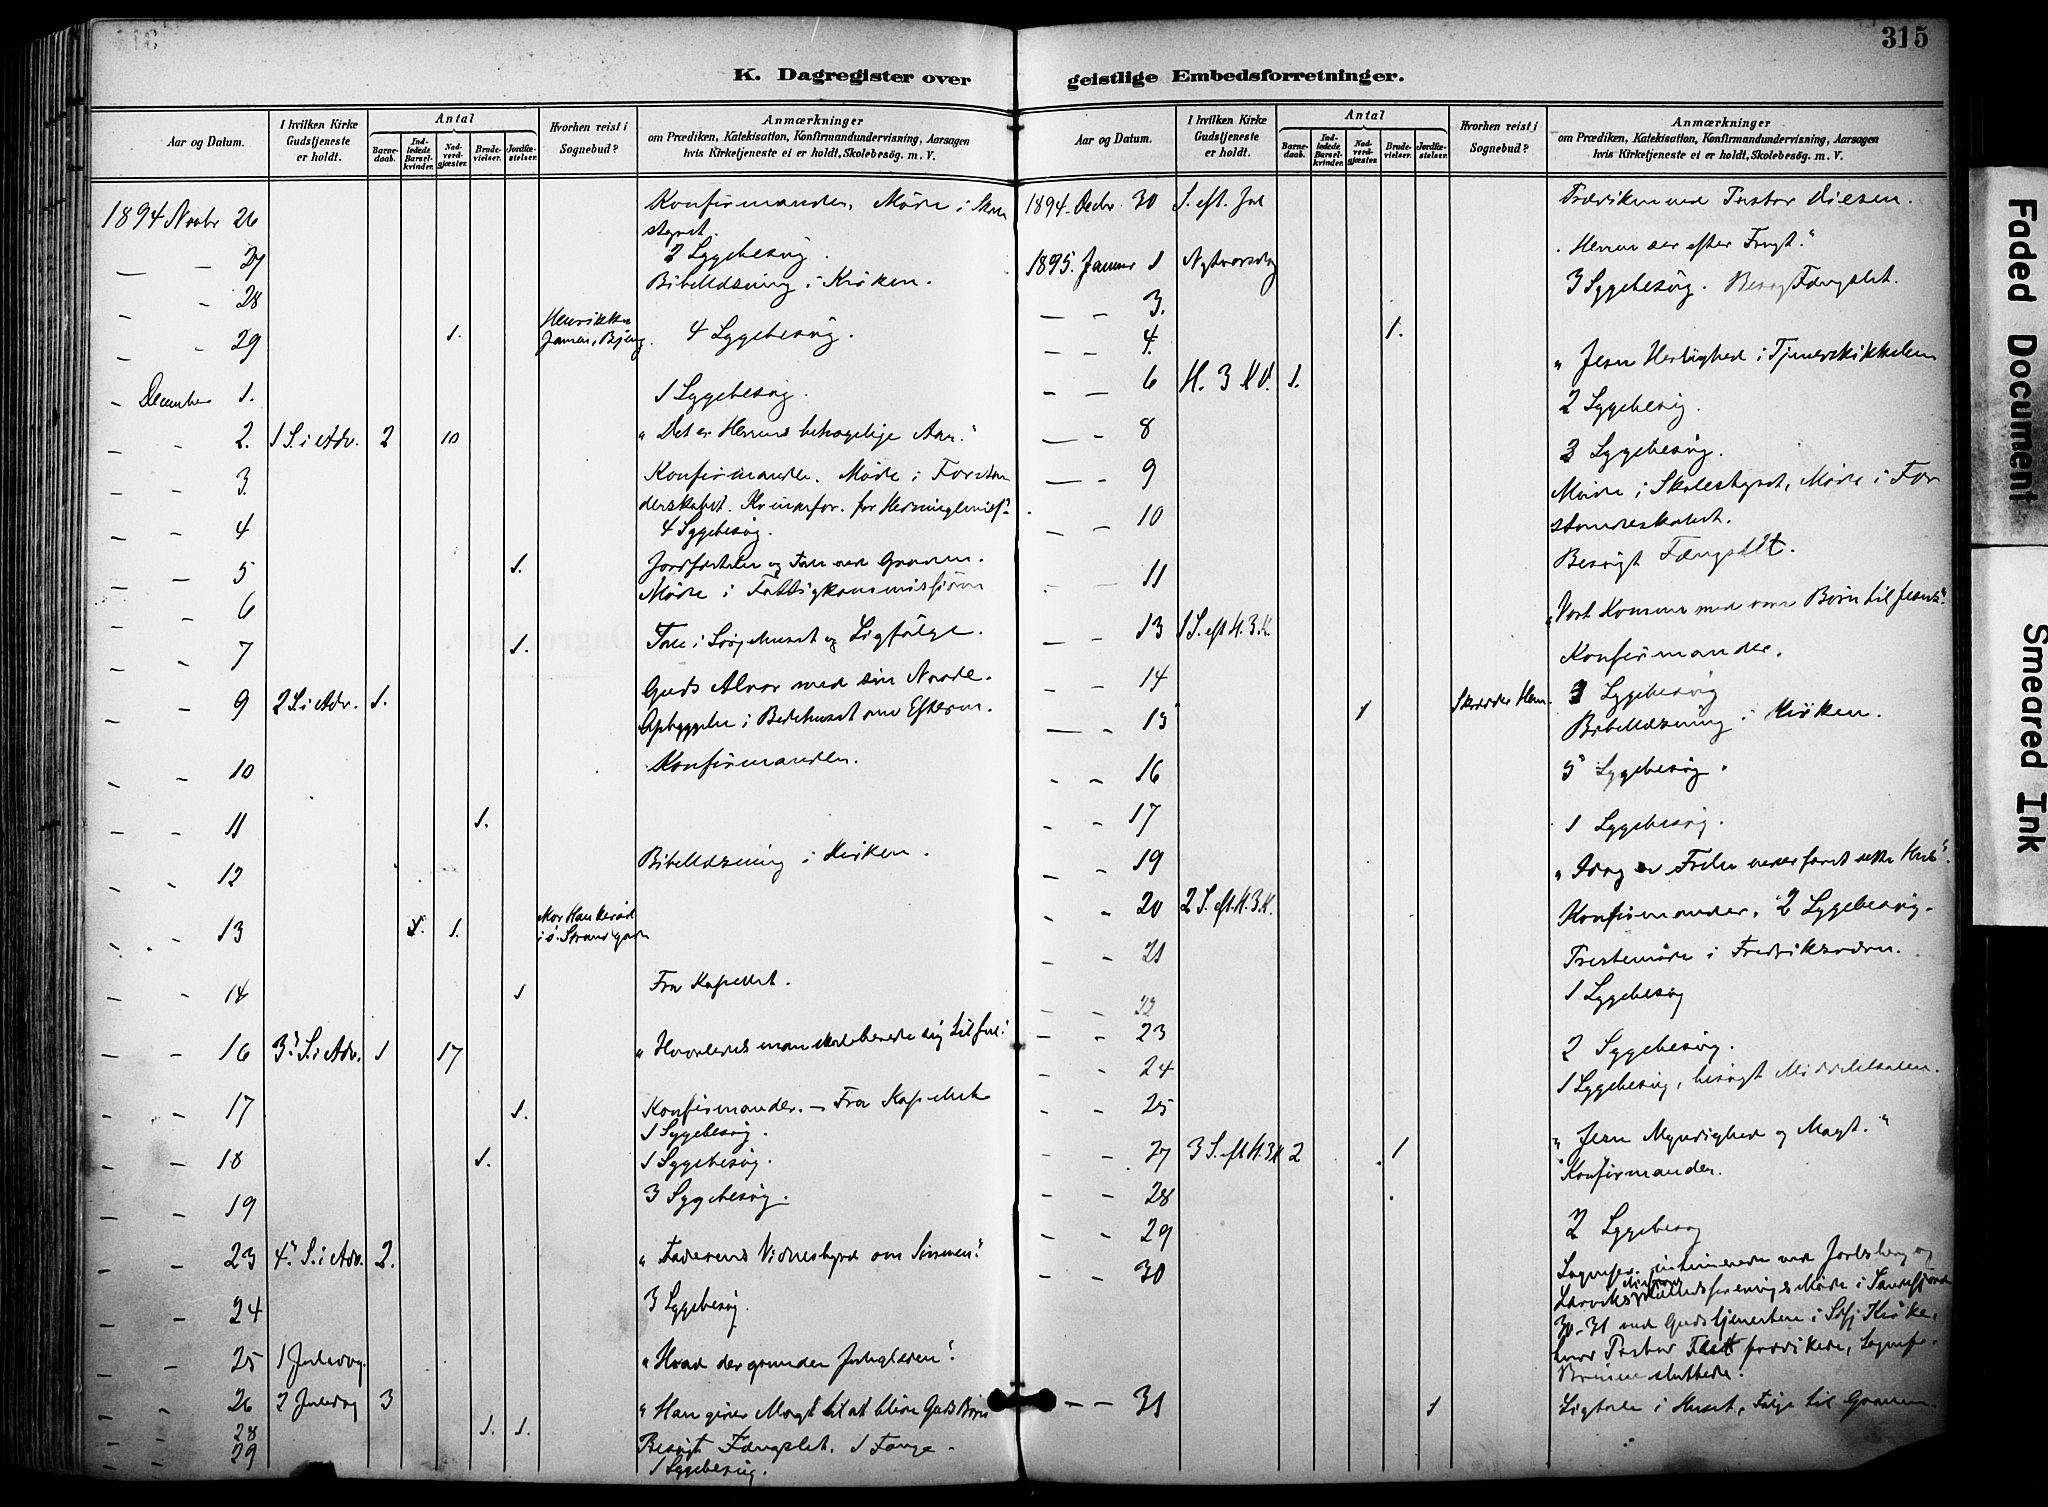 315
K. Dagregister over geistlige Embedsforretninger.
Aar og Datum.
I hvilken Kirke Gudstjeneste er holdt.
Antal
Barnedaab.
Indledede Barselkvinder.
Nadverdgjæster.
Brudevielser.
Jordfæstelser.
Hvorhen reist i Sognebud?
Anmærkninger
om Prædiken, Katekisation, Konfirmandundervisning, Aarsagen
hvis Kirketjeneste ei er holdt, Skolebesög. m. V.
1894 Novbr 26 Konfirmander, Møde i Skole
styret.
— — 27 2 Sygebesøg.
- - 28 Bibellæsning i Kirken.
- - 29 1. 4 Sygebesøg.
- December 1. 1 Sygebesøg.
- - 2. 1 S. i Adv. 2 10 "Det er Herrens behagelige Aar."
- - 3. Konfirmander. Møde i Forstan
derskabet.
- - 4 4 Sygebesøg.
- - 5 1. Jordfæstelse og Tale ved Graven.
- - 6 Møde i Fattigkommissionen
- - 7 1. Tale i Sørgehuset og Ligfølge.
- - 9 2 S. i Adv. 1. Guds Alvor med sin Naade.
Opbyggelse i Bedehuset om Efterm.
- - 10 Konfirmander.
- - 11 1.
- - 12 Bibellæsning i Kirken.
- - 13 1. 1.
- - 14 1 Fra Kapellet.
- - 16 3. S. i Adv. 1 17 "Hvorledes man skal berede sig til Jul."
- - 17 1. Konfirmander. — Fra Kapellet
1 Sygebesøg.
- - 18 1. 1 Sygebesøg.
- - 19 3 Sygebesøg.
- - 23 4. S. i Adv. 2. "Faderens Vidnesbyrd om Sønnen."
- - 24 3 Sygebesøg.
- - 25 1 Juledag. "Hvad der grunder Juleglæden".
- - 26 2 Juledag 3 "Han giver Magt til at blive Guds Børn
- - 28 1. 1. Besøgt Fængslet. 1 Fange.
- - 29 1 Sygebesøg.
Aar og Datum.
I hvilken Kirke Gudstjeneste er holdt.
Antal
Barnedaab.
Indledede Barselkvinder.
Nadverdgjæster.
Brudevielser.
Jordfæstelser.
Hvorhen reist i Sognebud?
Anmærkninger
om Prædiken, Katekisation, Konfirmandundervisning, Aarsagen
hvis Kirketjeneste ei er holdt, Skolebesög. m. V.
1894 Decbr. 30 S. eft. Jul Prædiken ved Pastor Diesen.
1895. Januar 1 Nytaarsdag "Herren ser efter Frugt."
— - 3. 3 Sygebesøg. Besøgt Fængslet.
- - 4. 1.
- — 6 H. 3 K. D. 1. "Jesu Herlighed i Tjenerskikkelsen
— - 8 2 Sygebesøg.
— - 9 3 Sygebesøg.
- - 10 Møde i Skolestyret, Møde i For
standerskabet.
- — 11 Besøgt Fængslet.
— - 13 1 S. eft H. 3. K. "Vort Komme med vore Børn til Jesus".
- - 14 Konfirmander.
— - 15 1 3 Sygebesøg
Bibellæsning i Kirken.
- - 16 5 Sygebesøg.
- - 17 1 Sygebesøg.
- - 19
- 20 2 S. eft. H. 3. K. "Idag er Frelse vederfaret dette Hus".
- - 21 Konfirmander. 2 Sygebesøg.
- - 22 Prestemøde i Fredriksværn.
- - 23 1 Sygebesøg
- - 24 2 Sygebesøg.
- - 25 1 Sygebesøg, besøgt Middelskolen.
- - 27 3 S. eft H. 3 K 2 1 "Jesu Myndighed og Magt."
- - 28 Konfirmander.
- - 29 2 Sygebesøg
- - 30 Sognepr. ved Jarlsberg og
Larviks Møde i Sandefjord
30-31 ved Gudstjenesten i Kirke,
hvor Pastor prædikede, Sognepr.
sluttede.
- - 31 1 Ligtale i Huset, Følge til Graven.
Faded Document
Smeared Ink